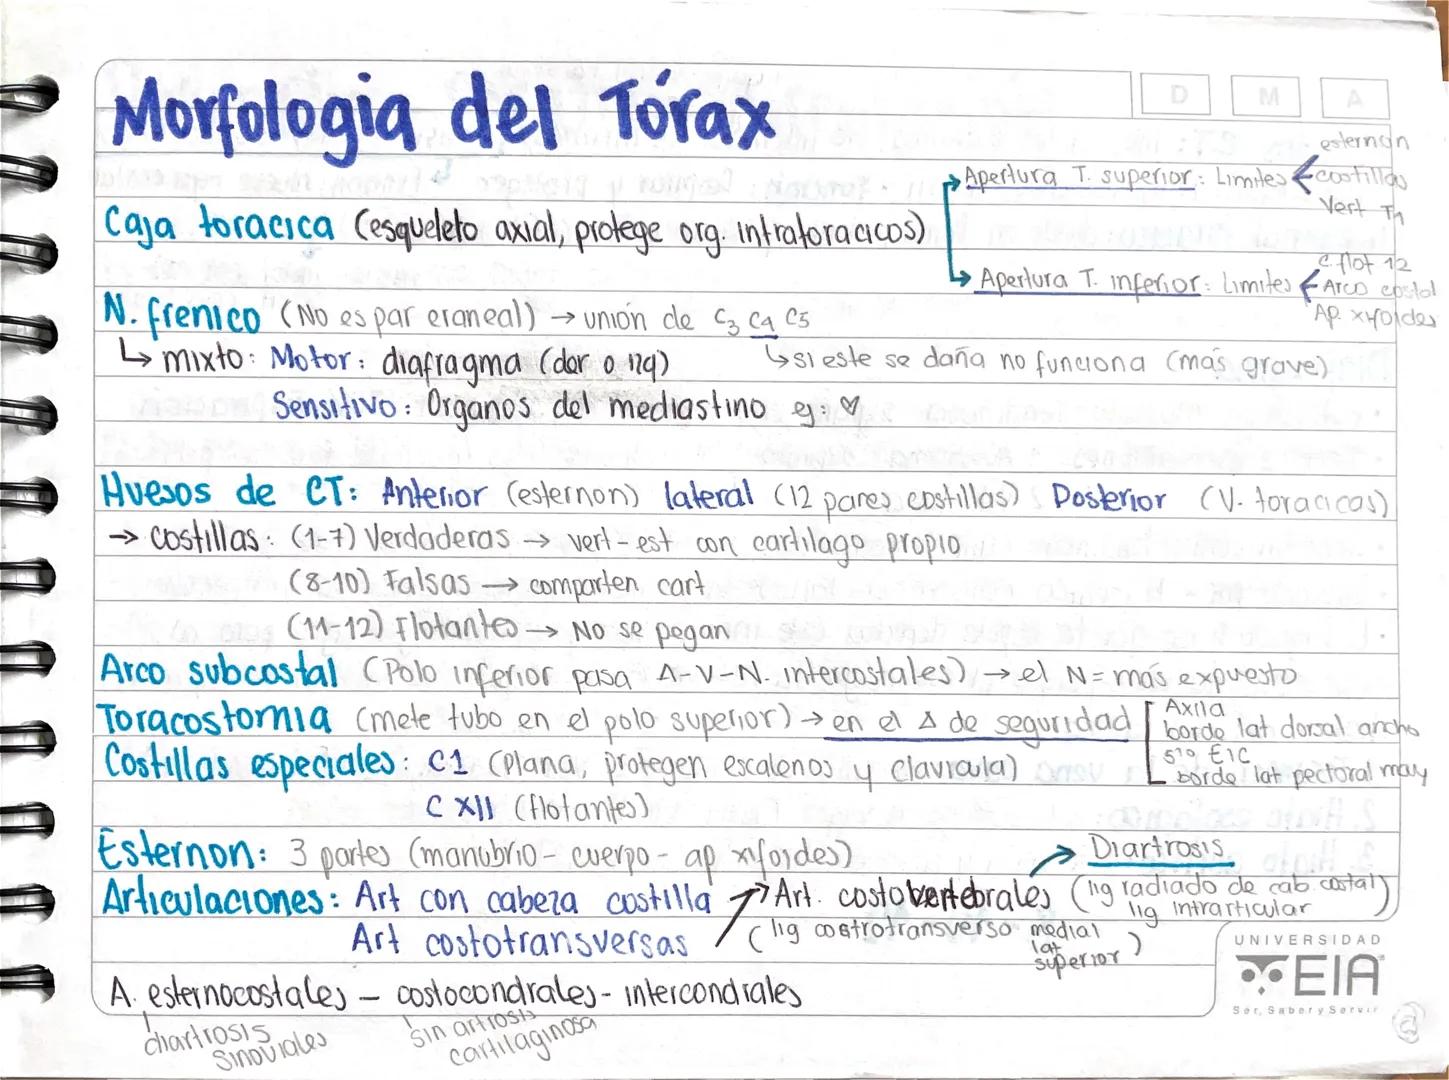 Morfologia del Tórax
D M A
Caja toracica (esqueleto axial, protege org. intratoracicos)
Apertura T. superior: Limites esternon
costillas
Vert T1
Apertura T. inferior: Limites C. flot 12
Arco costal
Ap. xifoides
N. frenico (No es par craneal) → unión de C3 C4 C5
↳ mixto: Motor: diafragma (der o izq) ↳ si este se daña no funciona (más grave)
Sensitivo: Organos del mediastino ej: ♡
Huesos de CT: Anterior (esternon) lateral (12 pares costillas) Posterior (V. toracicas)
→ costillas: (1-7) Verdaderas → vert-est con cartilago propio
(8-10) Falsas → comparten cart
(11-12) Flotantes → No se pegan
Arco subcostal (Polo inferior pasa A-V-N. intercostales) → el N= más expuesto
Toracostomia (mete tubo en el polo superior) → en el Δ de seguridad
Axila
borde lat dorsal ancho
5to EIC
Borde lat pectoral may
Costillas especiales: C1 (Plana, protegen escalenos y clavicula)
C XII (flotantes)
Esternon: 3 partes (manubrio - cuerpo - ap xifoides)
Articulaciones: Art con cabeza costilla → Art. costovertebrales → Diartrosis
(lig radiado de cab. costal)
lig intrarticular
Art costotransversas (lig costrotransverso medial
lat
superior)
A. esternocostales – costocondrales - intercondrales
diartrosis
sinoviales
sin artrosis
cartilaginosa
UNIVERSIDAD
EIA
Ser, Saber y Servir